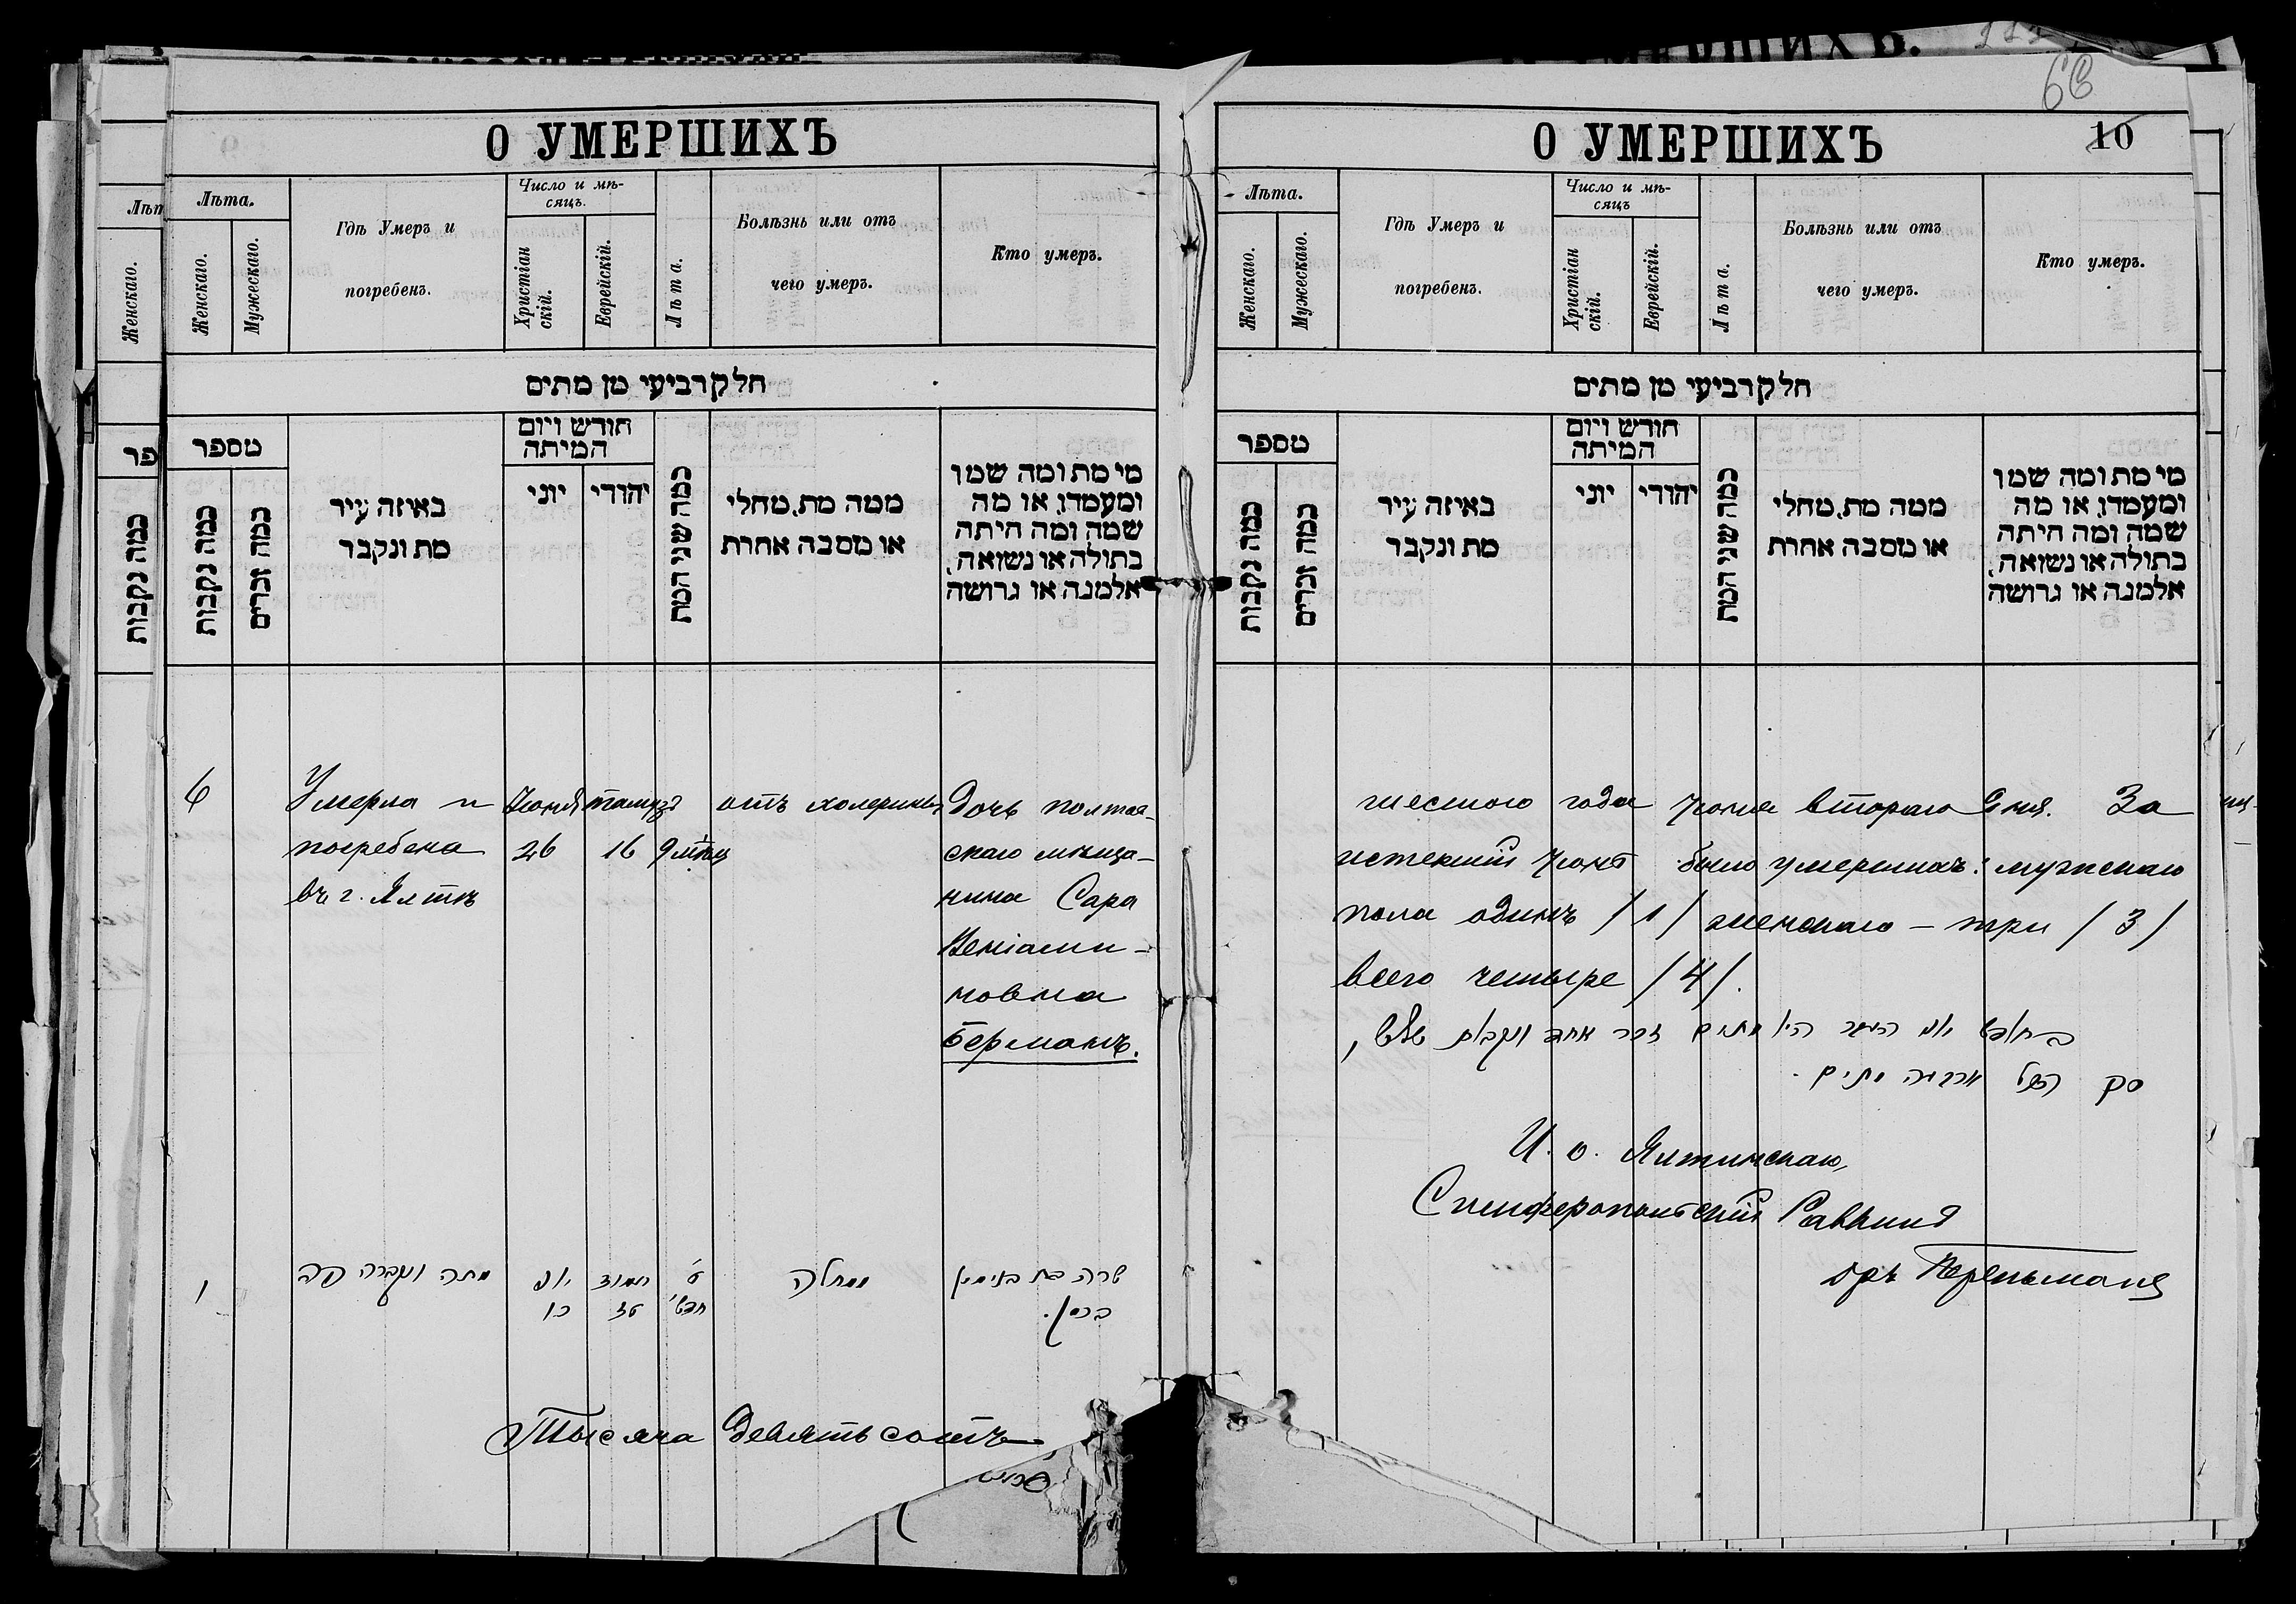 О УМЕРШИХЪ
Лѣта.
Женскаго.
Мужескаго.
Гдѣ Умеръ и
погребенъ.
Число и мѣ-
сяцъ.
Христіан
скій.
Еврейскій.
Лѣта.
Болѣзнь или отъ
чего умеръ.
Кто умеръ.
חלק רביעי מן מתים
מספר
כמה נקבות
כמה זכרים
באיזה עיר
מת ונקבר
חודש ויום
המיתה
יוני
יהודי
כמה שני המת
ממה מת, מחלי
או מסבה אחרת
מי מת ומה שמו
ומעמדו, או מה
שמה ומה היתה
בתולה או נשואה,
אלמנה או גרושה
6
Умерла и
погребена
въ г. Ялтѣ
Іюня
26
тамузъ
16
9 мѣсяц
отъ холерины
дочь полтав-
скаго мѣща-
нина Сара
Веніами-
новна
Берманъ.
מתה ונקברה פה
יוני
כו
תמוז
טז
ט׳
חדשי׳
ממחלה
שרה בת בנימין
ברמן.
Тысяча девятьсотъ
О УМЕРШИХЪ
68
10
Лѣта.
Женскаго.
Мужескаго.
Гдѣ Умеръ и
погребенъ.
Число и мѣ-
сяцъ
Христіан
скій.
Еврейскій.
Лѣта.
Болѣзнь или отъ
чего умеръ.
Кто умеръ.
חלק רביעי מן מתים
מספר
כמה נקבות
כמה זכרים
באיזה עיר
מת ונקבר
חודש ויום
המיתה
יוני
יהודי
כמה שני המת
ממה מת, מחלי
או מסבה אחרת
מי מת ומה שמו
ומעמדו, או מה
שמה ומה היתה
בתולה או נשואה,
אלמנה או גרושה
шестого года Іюля втораго дня. За
истекшій Іюнь было умершихъ: мужскаго
пола одинъ /1/ женскаго – три /3/
всего четыре /4/.
בחודש יוני העבר היו מתים זכר אחד ונקבות שלש,
סך הכל ארבעה מתים.
И. о. Ялтинскаго,
Симферопольскій Раввинъ